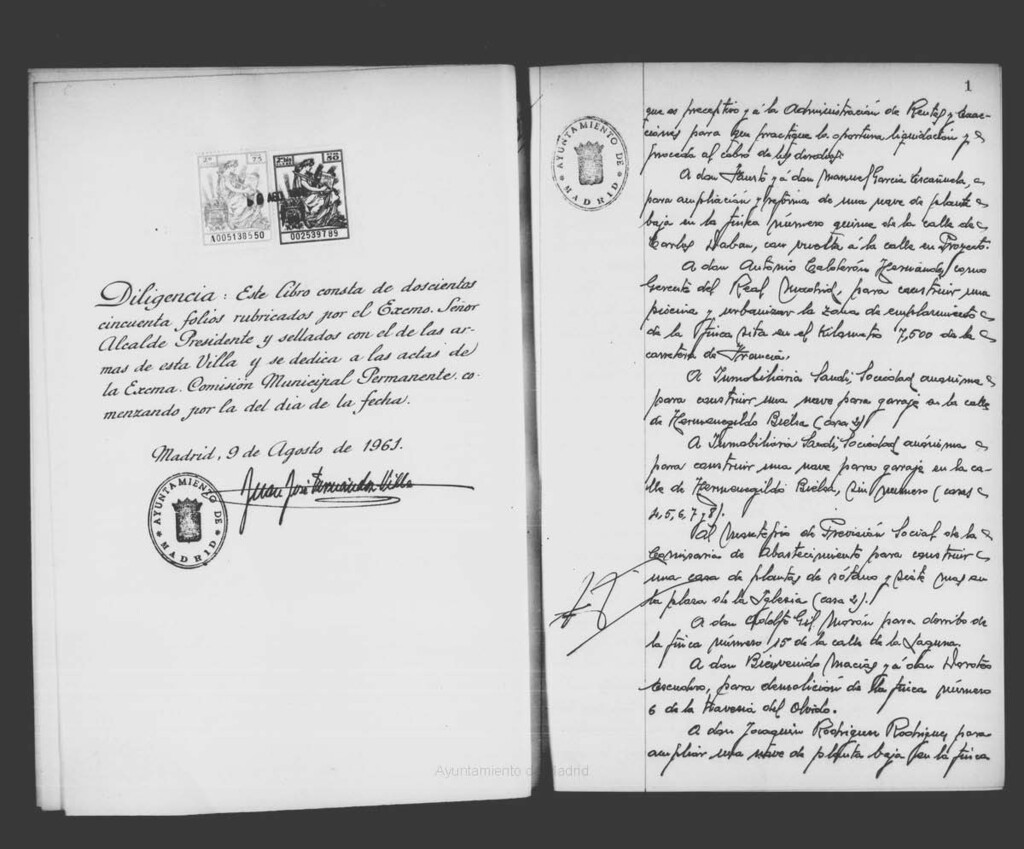 A005138550
002539789
Diligencia: Este libro consta de doscientos
cincuenta folios rubricados por el Excmo. Señor
Alcalde Presidente y sellados con el de las ar-
mas de esta Villa y se dedica a las actas de
la Excma. Comisión Municipal Permanente, co-
menzando por la del dia de la fecha.
Madrid, 9 de Agosto de 1961.
AYUNTAMIENTO DE
MADRID
Juan José Fernández Villa
1
AYUNTAMIENTO DE
MADRID
que es preceptivo y á la Administración de Rentas y Exac-
ciones para que practique la oportuna liquidación y
proceda al cobro de los derechos.
A don Fausto y á don Manuel García Escañuela,
para ampliación y reforma de una nave de planta
baja en la finca número quince de la calle de
Carlos Daban, con vuelta á la calle en Proyecto.
A don Antonio Calderón Hernández como
Gerente del Real Madrid, para construir una
piscina y urbanizar la zona de emplazamiento
de la finca sita en el Kilometro 7,500 de la
carretera de Francia.
A Inmobiliaria Saudi, Sociedad anónima
para construir una nave para garaje en la calle
de Hermenegildo Bielsa (casa 2)
A Inmobiliaria Saudi, Sociedad anónima
para construir una nave para garaje en la ca-
lle de Hermenegildo Bielsa, sin número (casas
4, 5, 6, 7 y 8).
Al Montepío de Previsión Social de la
Comisaria de Abastecimiento para construir
una casa de plantas de sótano y siete mas en
la plaza de la Iglesia (casa 2).
A don Adolfo Gil Morán para derribo de
la finca número 15 de la calle de la Laguna.
A don Bienvenido Macías y á don Doroteo
Escudero, para demolición de la finca número
6 de la travesia del Olvido.
A don Joaquín Rodriguez Rodriguez para
ampliar una nave de planta baja en la finca
Ayuntamiento de Madrid